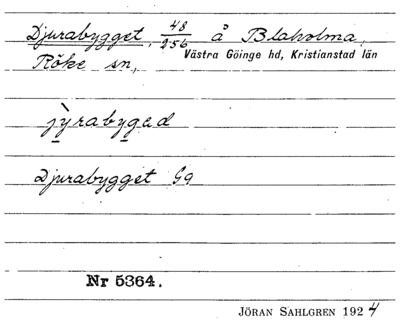 Djurabygget, 48/256 å Blaholma,
Röke sn, Västra Göinge hd, Kristianstad län
jỳrabygəd
Djurabygget Gg
Nr 5364.
JÖRAN SAHLGREN 1924